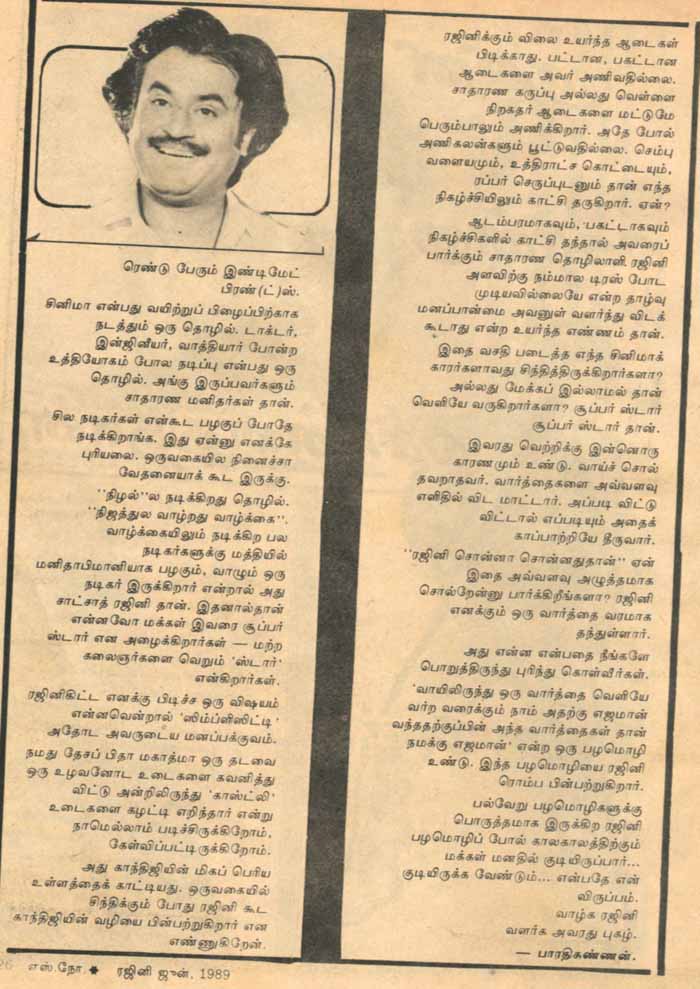 ரெண்டு பேரும் இண்டிமேட்
பிரண்(ட்)ஸ்.
சினிமா என்பது வயிற்றுப் பிழைப்பிற்காக
நடத்தும் ஒரு தொழில். டாக்டர்,
இன்ஜினீயர், வாத்தியார் போன்ற
உத்தியோகம் போல நடிப்பு என்பது ஒரு
தொழில். அங்கு இருப்பவர்களும்
சாதாரண மனிதர்கள் தான்.
சில நடிகர்கள் என்கூட பழகுப் போதே
நடிக்கிறாங்க. இது ஏன்னு எனக்கே
புரியலை. ஒருவகையில நினைச்சா
வேதனையாக் கூட இருக்கு.
"நிழல்"ல நடிக்கிறது தொழில்.
"நிஜத்துல வாழ்றது வாழ்க்கை".
வாழ்க்கையிலும் நடிக்கிற பல
நடிகர்களுக்கு மத்தியில்
மனிதாபிமானியாக பழகும், வாழும் ஒரு
நடிகர் இருக்கிறார் என்றால் அது
சாட்சாத் ரஜினி தான். இதனால்தான்
என்னவோ மக்கள் இவரை சூப்பர்
ஸ்டார் என அழைக்கிறார்கள் — மற்ற
கலைஞர்களை வெறும் 'ஸ்டார்'
என்கிறார்கள்.
ரஜினிகிட்ட எனக்கு பிடிச்ச ஒரு விஷயம்
என்னவென்றால் 'ஸிம்ப்ளிஸிட்டி'
அதோட அவருடைய மனப்பக்குவம்.
நமது தேசப் பிதா மகாத்மா ஒரு தடவை
ஒரு உழவனோட உடைகளை கவனித்து
விட்டு அன்றிலிருந்து 'காஸ்ட்லி'
உடைகளை கழட்டி எறிந்தார் என்று
நாமெல்லாம் படிச்சிருக்கிறோம்,
கேள்விப்பட்டிருக்கிறோம்.
அது காந்திஜியின் மிகப் பெரிய
உள்ளத்தைக் காட்டியது. ஒருவகையில்
சிந்திக்கும் போது ரஜினி கூட
காந்திஜியின் வழியை பின்பற்றுகிறார் என
எண்ணுகிறேன்.
ரஜினிக்கும் விலை உயர்ந்த ஆடைகள்
பிடிக்காது. பட்டான, பகட்டான
ஆடைகளை அவர் அணிவதில்லை.
சாதாரண கருப்பு அல்லது வெள்ளை
நிறகதர் ஆடைகளை மட்டுமே
பெரும்பாலும் அணிக்கிறார். அதே போல்
அணிகலன்களும் பூட்டுவதில்லை. செம்பு
வளையமும், உத்திராட்ச கொட்டையும்,
ரப்பர் செருப்புடனும் தான் எந்த
நிகழ்ச்சியிலும் காட்சி தருகிறார். ஏன்?
ஆடம்பரமாகவும், பகட்டாகவும்
நிகழ்ச்சிகளில் காட்சி தந்தால் அவரைப்
பார்க்கும் சாதாரண தொழிலாளி ரஜினி
அளவிற்கு நம்மால டிரஸ் போட
முடியவில்லையே என்ற தாழ்வு
மனப்பான்மை அவனுள் வளர்ந்து விடக்
கூடாது என்ற உயர்ந்த எண்ணம் தான்.
இதை வசதி படைத்த எந்த சினிமாக்
காரர்களாவது சிந்தித்திருக்கிறார்களா?
அல்லது மேக்கப் இல்லாமல் தான்
வெளியே வருகிறார்களா? சூப்பர் ஸ்டார்
சூப்பர் ஸ்டார் தான்.
இவரது வெற்றிக்கு இன்னொரு
காரணமும் உண்டு. வாய்ச் சொல்
தவறாதவர். வார்த்தைகளை அவ்வளவு
எளிதில் விட மாட்டார். அப்படி விட்டு
விட்டால் எப்படியும் அதைக்
காப்பாற்றியே தீருவார்.
"ரஜினி சொன்னா சொன்னதுதான்" ஏன்
இதை அவ்வளவு அழுத்தமாக
சொல்றேன்னு பார்க்கிறீங்களா? ரஜினி
எனக்கும் ஒரு வார்த்தை வரமாக
தந்துள்ளார்.
அது என்ன என்பதை நீங்களே
பொறுத்திருந்து புரிந்து கொள்வீர்கள்.
'வாயிலிருந்து ஒரு வார்த்தை வெளியே
வர்ற வரைக்கும் நாம் அதற்கு எஜமான்
வந்ததற்குப்பின் அந்த வார்த்தைகள் தான்
நமக்கு எஜமான்' என்ற ஒரு பழமொழி
உண்டு. இந்த பழமொழியை ரஜினி
ரொம்ப பின்பற்றுகிறார்.
பல்வேறு பழமொழிகளுக்கு
பொருத்தமாக இருக்கிற ரஜினி
பழமொழிப் போல் காலகாலத்திற்கும்
மக்கள் மனதில் குடியிருப்பார்...
குடியிருக்க வேண்டும்... என்பதே என்
விருப்பம்.
வாழ்க ரஜினி
வளர்க அவரது புகழ்.
— பாரதிகண்ணன்.
26 எஸ்.நோ. ✱ ரஜினி ஜுன், 1989